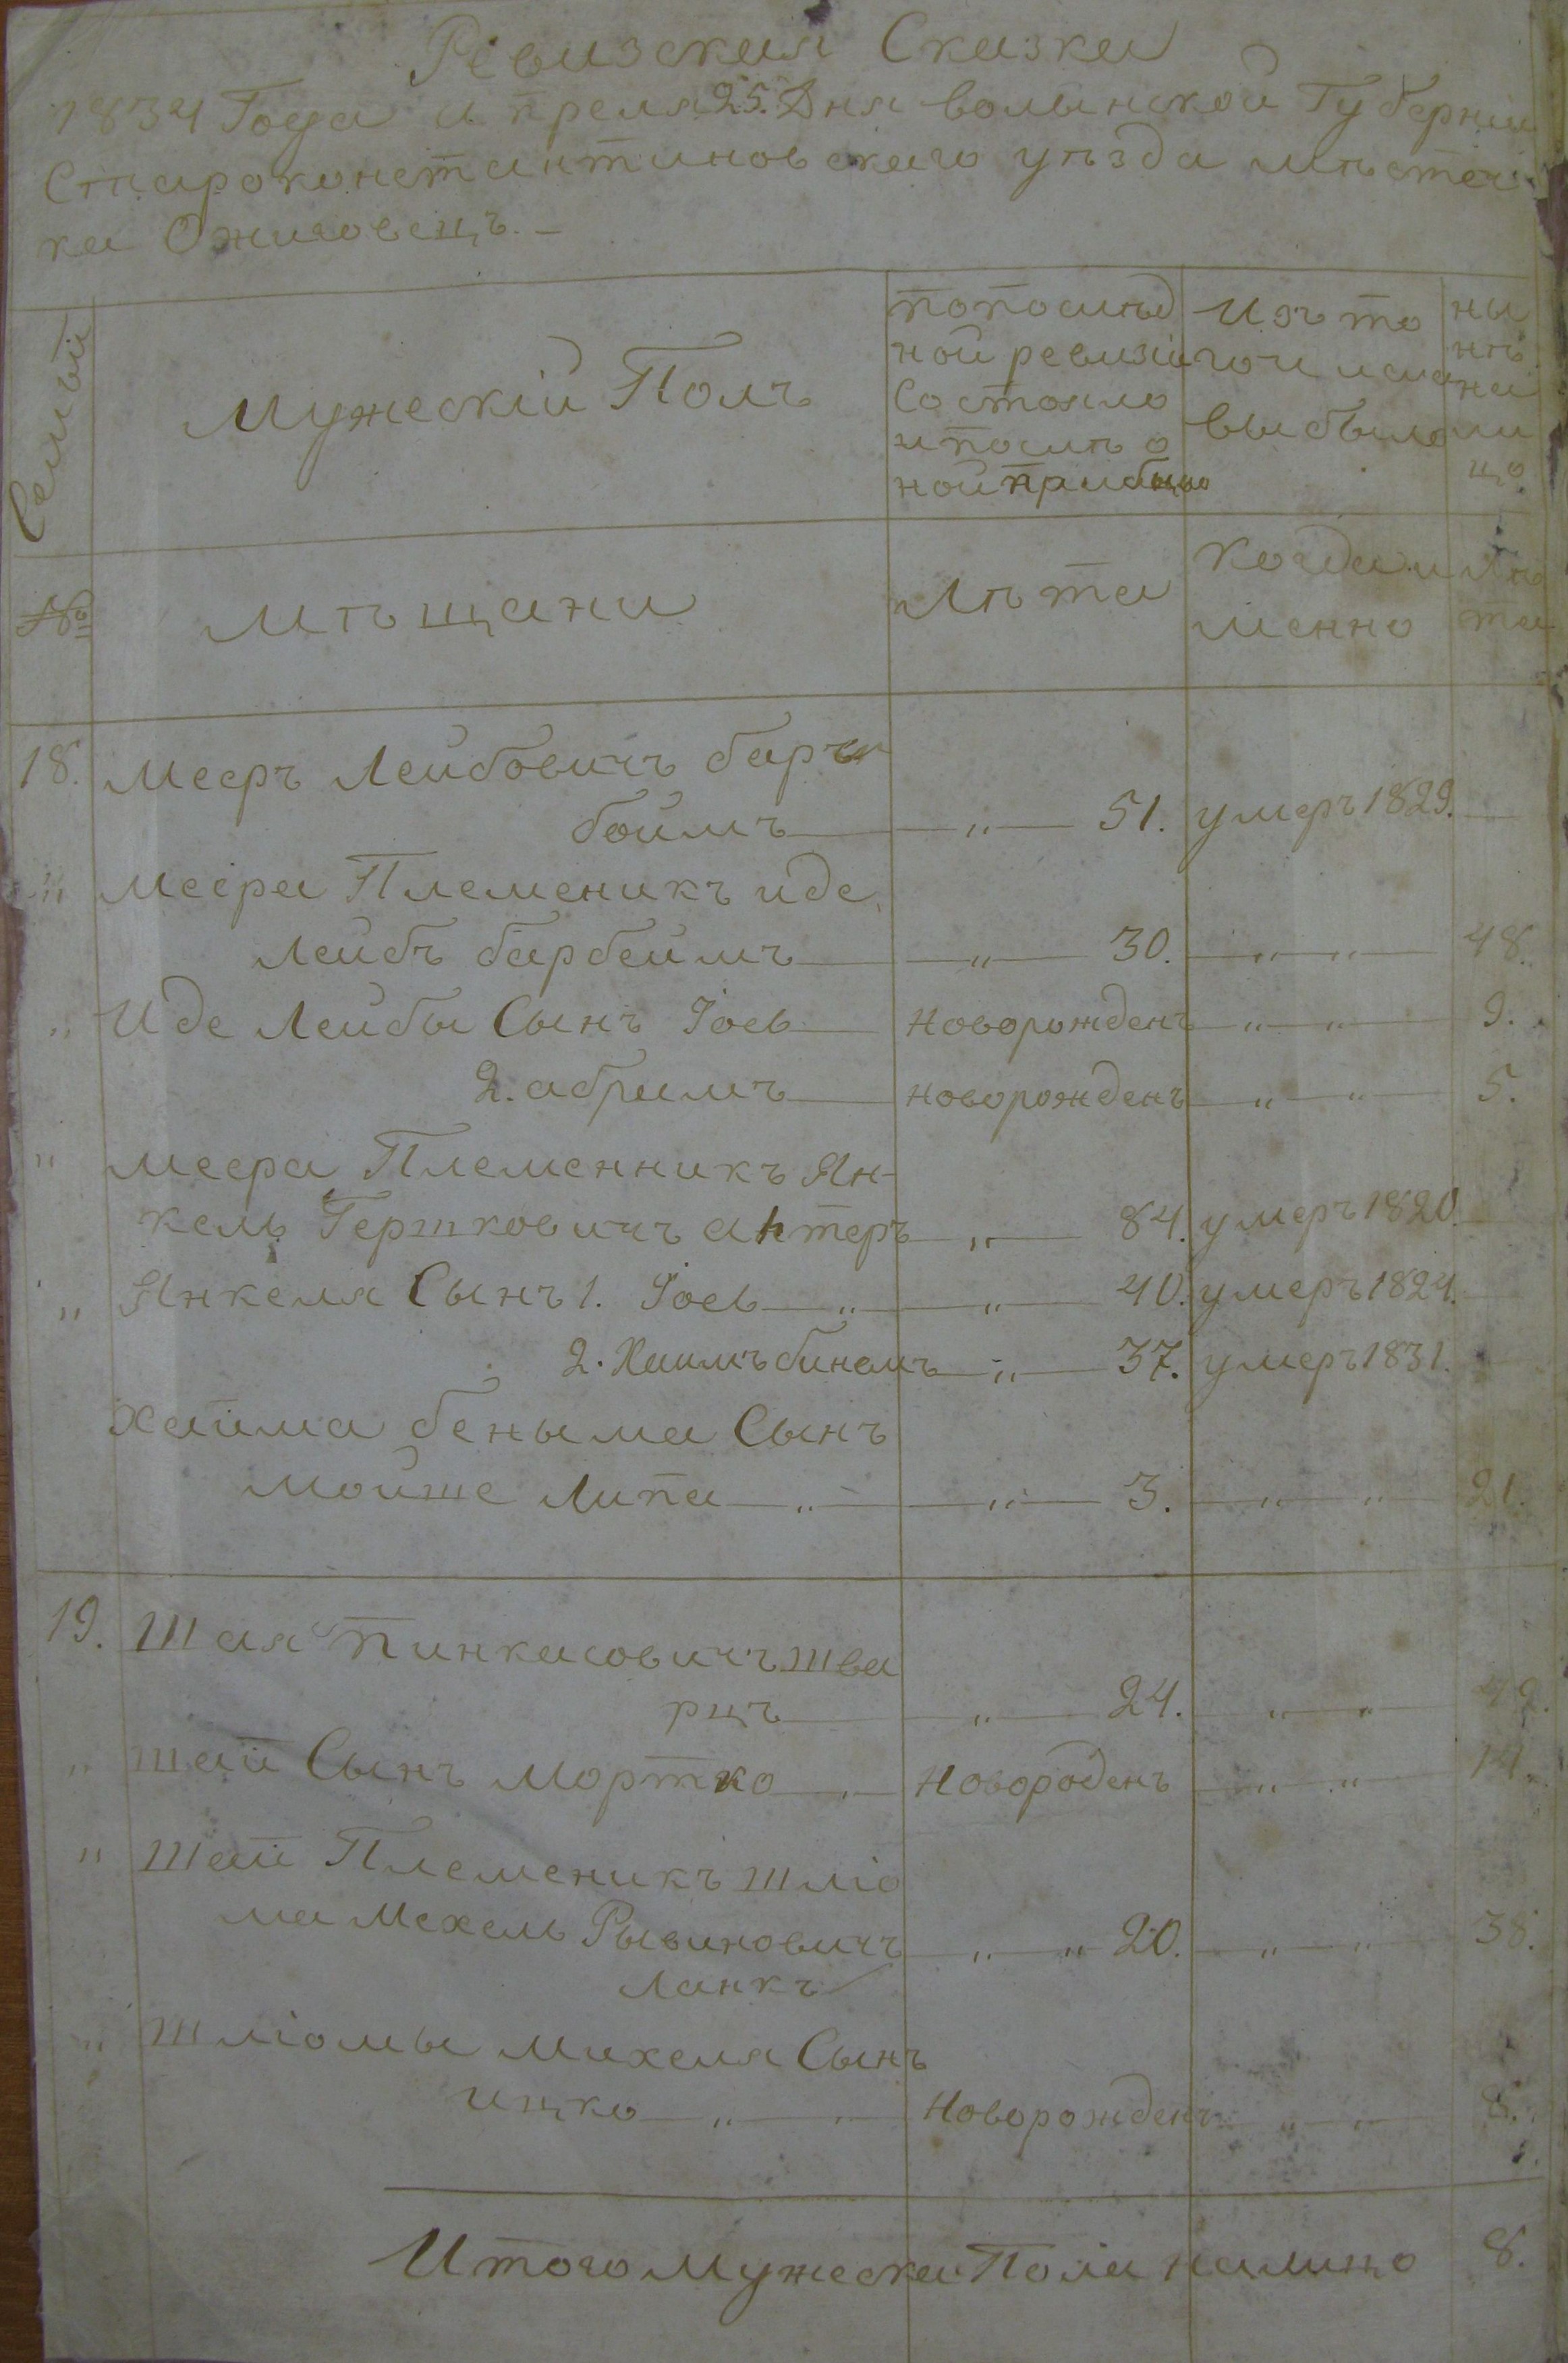 Ревизская Сказка
1834 Года апреля 25. Дня волынской Губерніи
Староконстантиновскаго уѣзда мѣстеч
ка Ожиговецъ. –
Семьи
Мужескій Полъ
по послѣд
ной ревизіи
Состояло
и послѣ о
ной прибыло
Изъ то
го числа
выбыло
ны
нѣ
на
ли
цо
№
мѣщани
Лѣта
Когда и
менно
Лѣ
та
18. Мееръ Лейбовичъ баръ
боимъ — „ — 51. умеръ 1829. —
„ Меера Племеникъ иде
Лейбъ барбеимъ — „ — 30. — „ — „ — 48.
„ Иде Лейбы Сынъ Іось — Новорожденъ — „ — „ — 9.
2. абрамъ — новорожденъ — „ — „ — 5.
„ меера Племенникъ Ян-
кель Гершковичъ актеръ — „ — 84. умеръ 1820. —
„ Янкеля Сынъ 1. Іось — „ — „ — 40. умеръ 1824. —
2. Хаимъ бинемъ — „ — 37. умеръ 1831. —
Хаима беныма Сынъ
Мойше Липа — „ — „ — 3. — „ — „ — 21.
19. Шая Пинкасовичъ шва
рцъ — „ — 24. — „ — „ — 42.
„ шаи Сынъ Мортко — „ — Новороденъ — „ — „ — 14.
„ Шаи Племеникъ шліо
ма Мехель Рывиновичъ — „ — „ 20. — „ — „ — 38.
Ланкъ
„ Шліомы Михеля Сынъ
ицко — „ — „ — Новорожденъ — „ — „ — 8.
Итого мужеска Пола налицо 8.